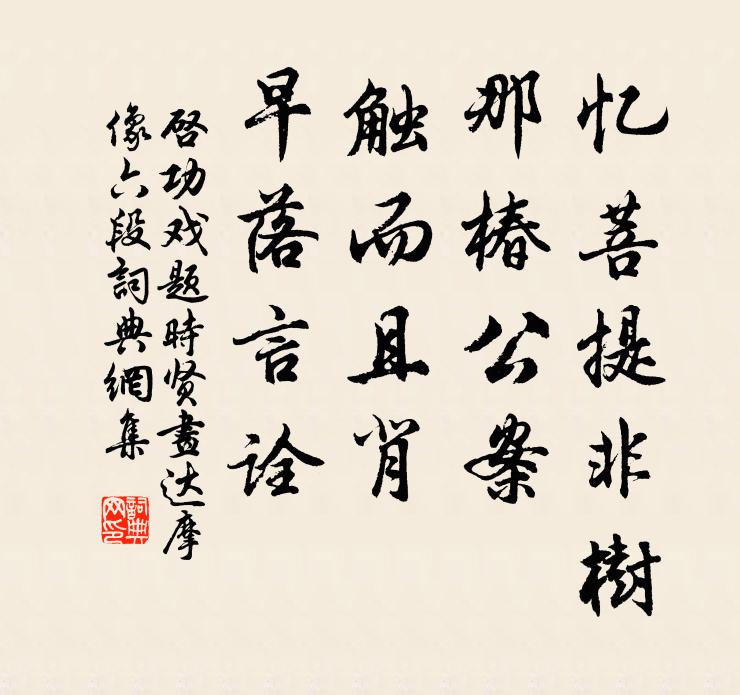 忆菩提非樹
那椿公案
触而且背
早落言詮
啓功戏题時贤畫达摩
像六段詞典網集
詞典
网印